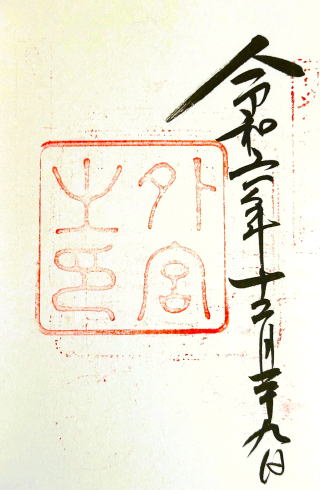 令和六年十二月二十九日
外宮
之印